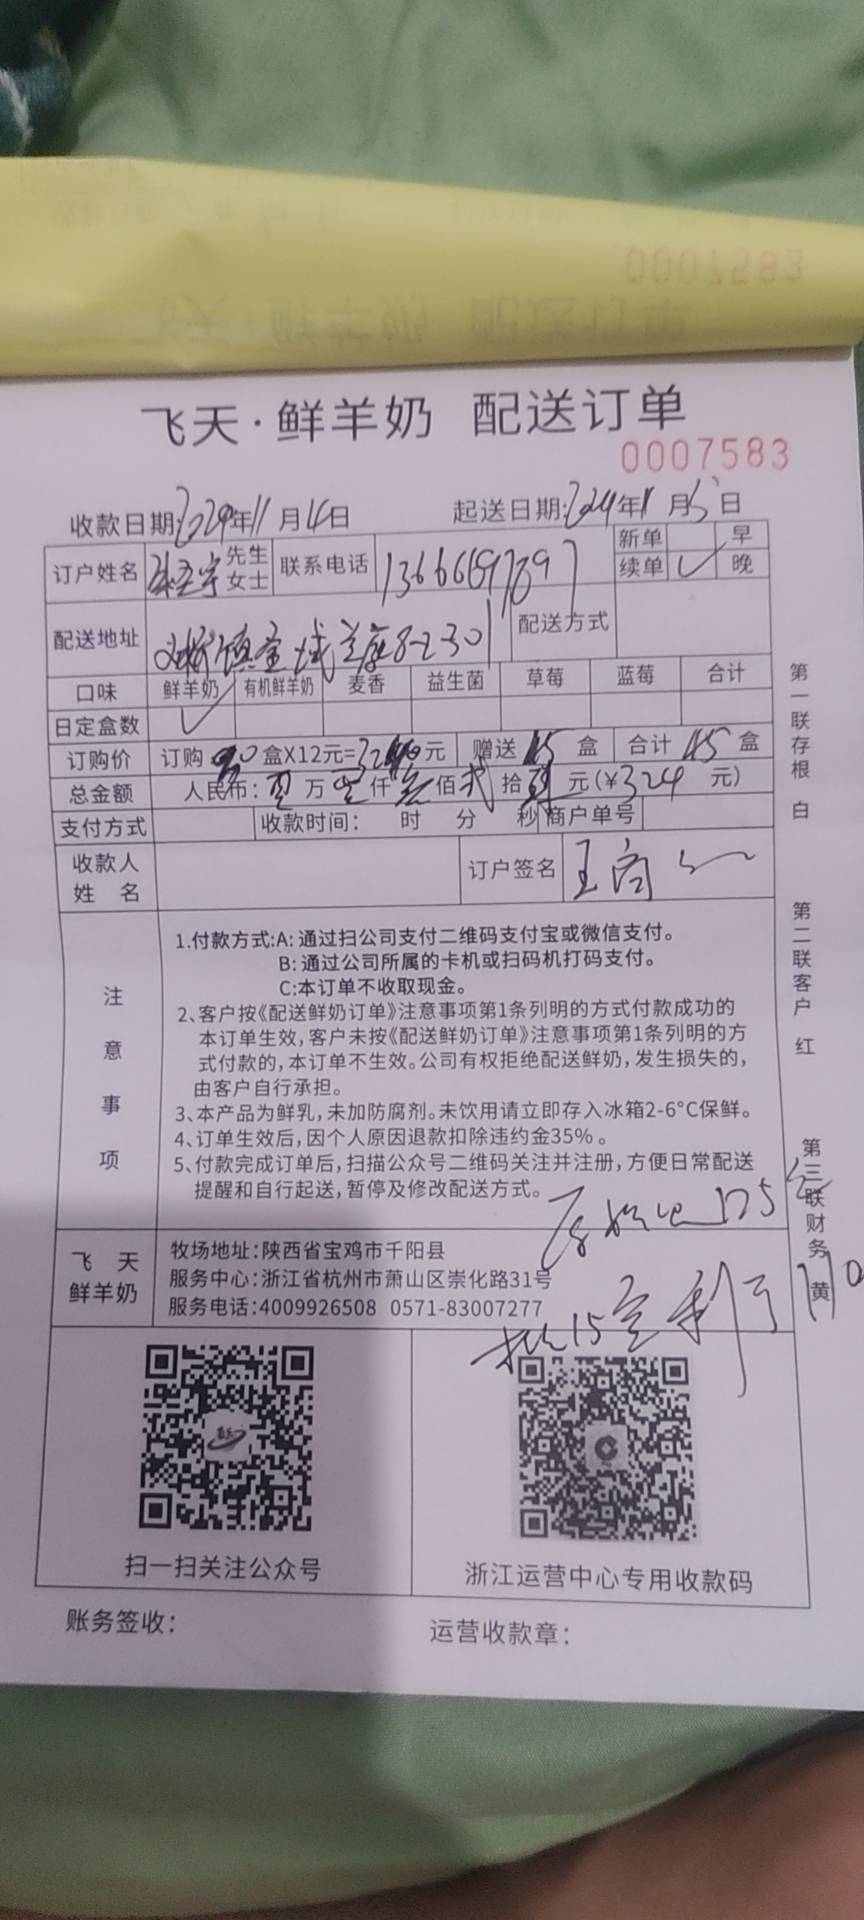 0007583
飞天·鲜羊奶 配送订单
0007583
收款日期:2024年11月4日 起送日期:2024年11月5日
订户姓名 先生 女士 联系电话 新单 早
续单 ✓ 晚
配送地址 8-2-301 配送方式
口味 鲜羊奶 有机鲜羊奶 麦香 益生菌 草莓 蓝莓 合计
日定盒数 ✓
订购价 订购 盒X12元= 元 赠送 15 盒 合计 盒
总金额 人民币: 万 仟 叁佰 贰拾 元(¥324 元)
支付方式 收款时间: 时 分 秒 商户单号
收款人姓名 订户签名 王
注意事项
1.付款方式:A:通过扫公司支付二维码支付宝或微信支付。
B:通过公司所属的卡机或扫码机打码支付。
C:本订单不收取现金。
2、客户按《配送鲜奶订单》注意事项第1条列明的方式付款成功的
本订单生效,客户未按《配送鲜奶订单》注意事项第1条列明的方
式付款的,本订单不生效。公司有权拒绝配送鲜奶,发生损失的,
由客户自行承担。
3、本产品为鲜乳,未加防腐剂。未饮用请立即存入冰箱2-6°C保鲜。
4、订单生效后,因个人原因退款扣除违约金35%。
5、付款完成订单后,扫描公众号二维码关注并注册,方便日常配送
提醒和自行起送,暂停及修改配送方式。
125
飞天鲜羊奶
牧场地址:陕西省宝鸡市千阳县
服务中心:浙江省杭州市萧山区崇化路31号
服务电话:4009926508 0571-83007277
15 剩 110
扫一扫关注公众号
浙江运营中心专用收款码
账务签收:
运营收款章:
第一联存根 白
第二联客户 红
第三联财务 黄